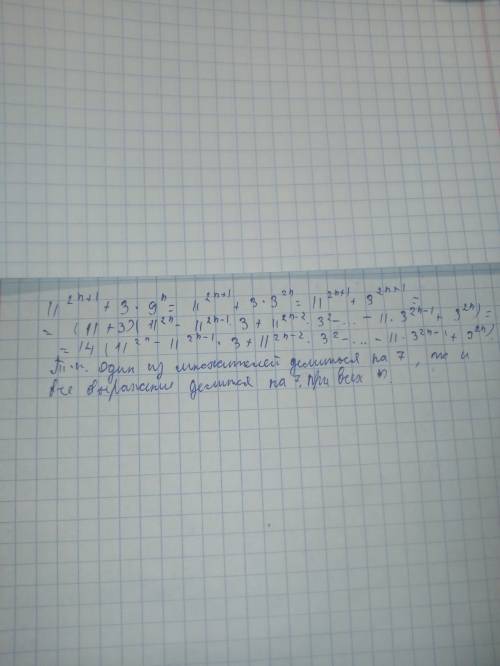 11^{2n+1} + 3 · 9^n = 11^{2n+1} + 3 · 3^{2n} = 11^{2n+1} + 3^{2n+1} =
= (11 + 3)(11^{2n} - 11^{2n-1} · 3 + 11^{2n-2} · 3^2 - ... - 11 · 3^{2n-1} + 3^{2n}) =
= 14 (11^{2n} - 11^{2n-1} · 3 + 11^{2n-2} · 3^2 - ... - 11 · 3^{2n-1} + 3^{2n})
Т.к. один из множителей делится на 7, то и
все выражение делится на 7 при всех n.